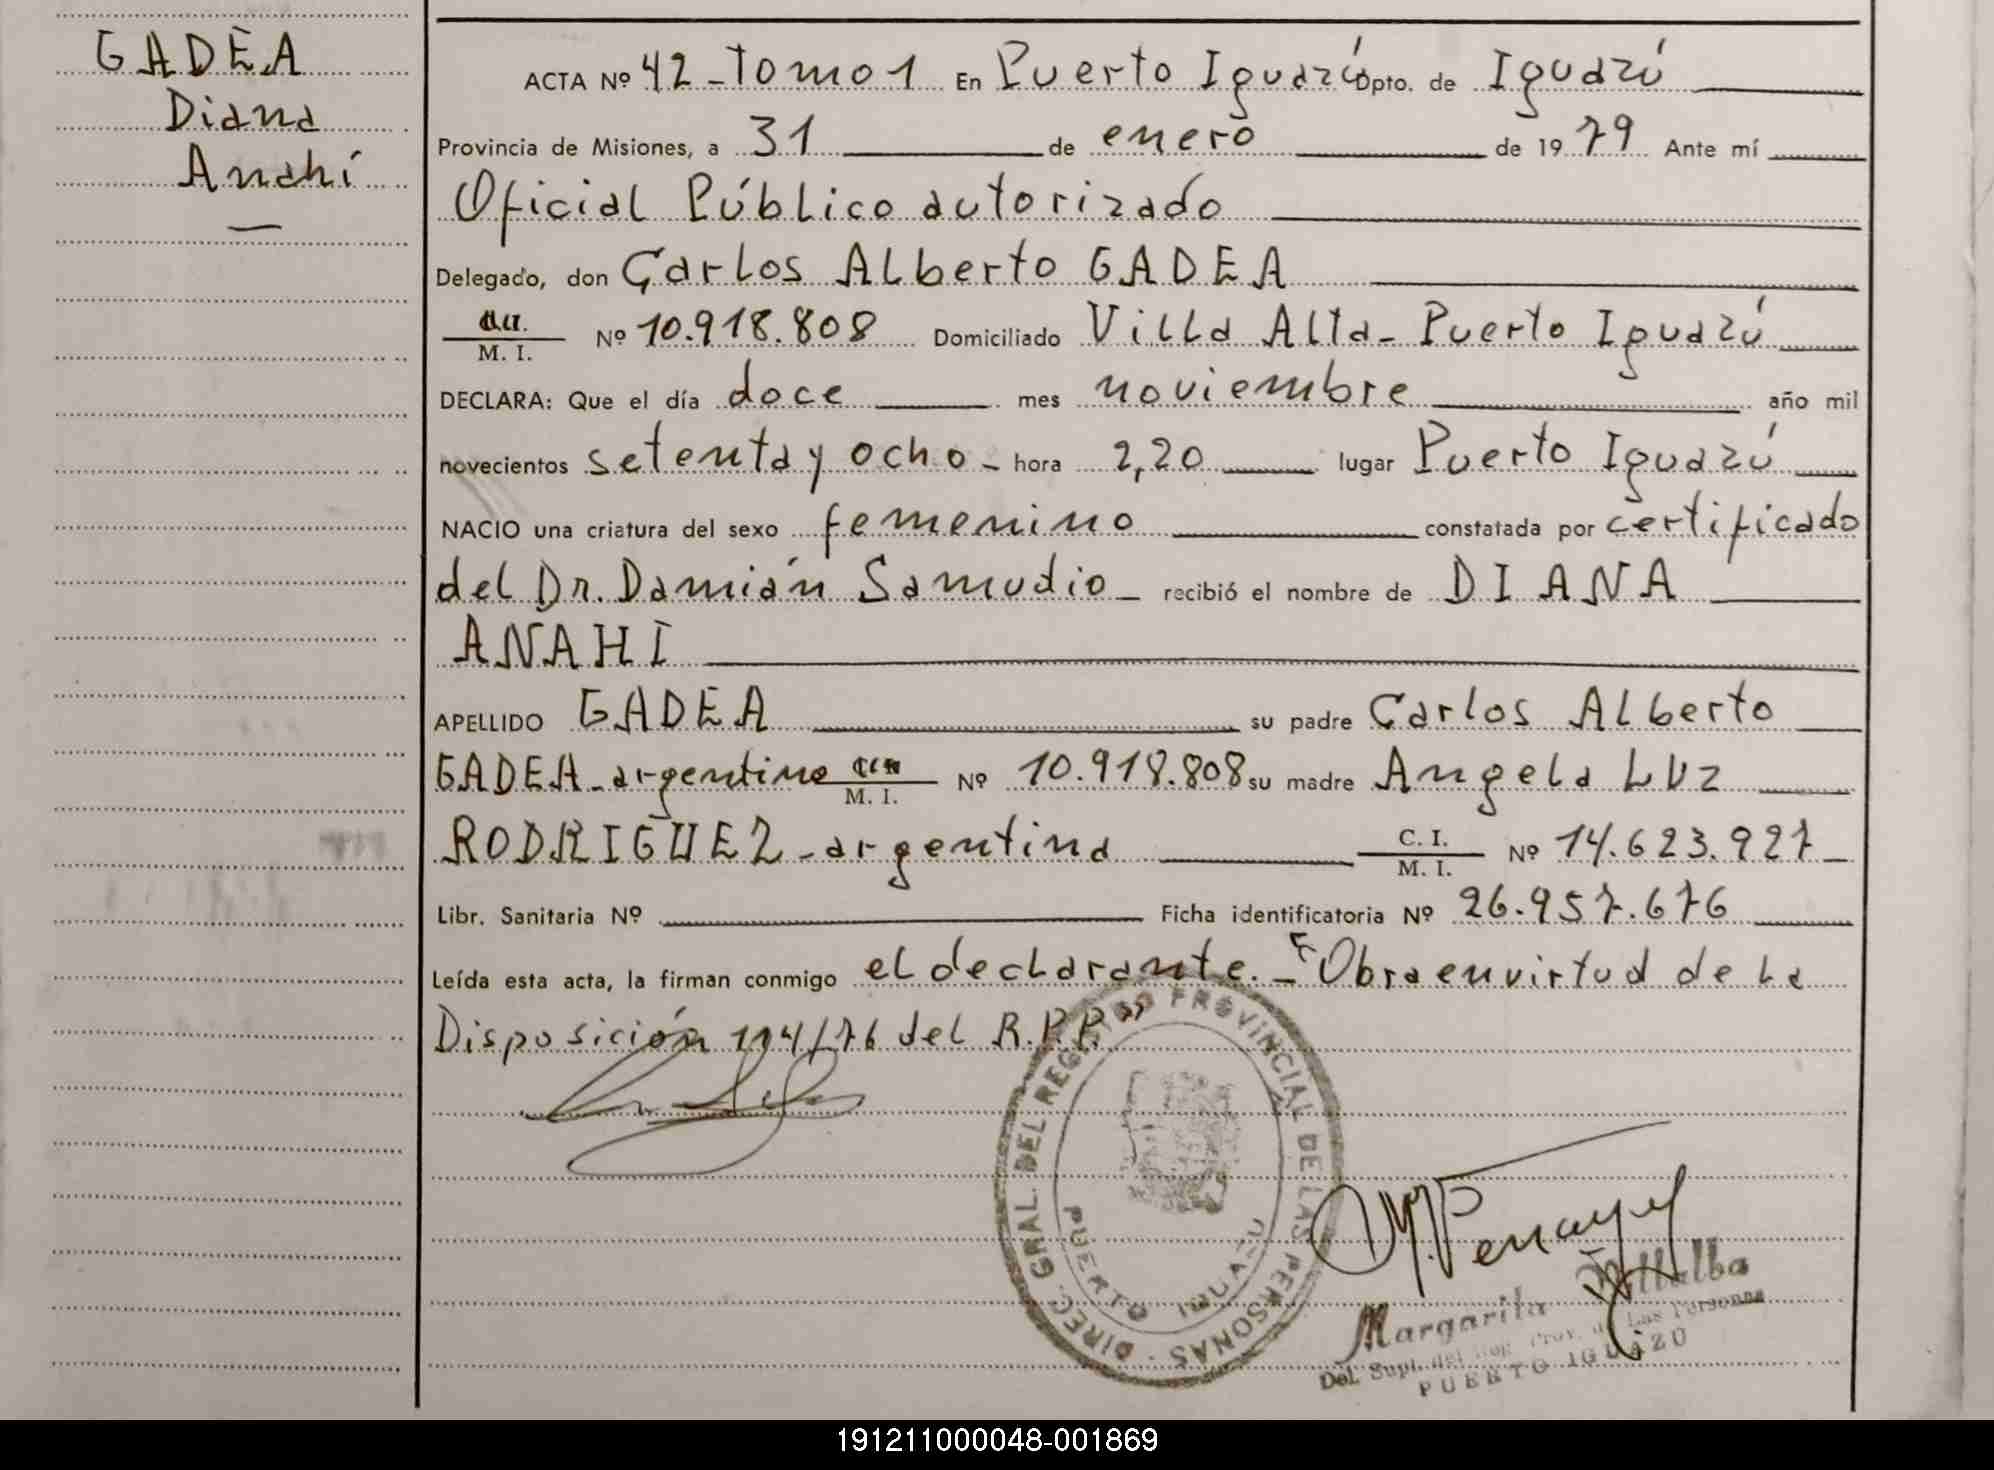 GADEA
Diana
Anahí
ACTA Nº 42 - Tomo 1 En Puerto Iguazú Dpto. de Iguazú
Provincia de Misiones, a 31 de enero de 1979 Ante mí
Oficial Público autorizado
Delegado, don Carlos Alberto GADEA
M. I. Nº 10.918.808 Domiciliado Villa Alta - Puerto Iguazú
DECLARA: Que el día doce mes noviembre año mil
novecientos setenta y ocho - hora 2,20 lugar Puerto Iguazú
NACIO una criatura del sexo femenino constatada por certificado
del Dr. Damián Samudio - recibió el nombre de DIANA
ANAHÍ
APELLIDO GADEA su padre Carlos Alberto
GADEA - argentino M. I. Nº 10.918.808 su madre Angela Luz
RODRIGUEZ - argentina C. I. M. I. Nº 14.623.927
Libr. Sanitaria Nº Ficha identificatoria Nº 26.957.676
Leída esta acta, la firman conmigo el declarante. - "Obra en virtud de la
Disposición 114/76 del R.P.P."
DIREC. GRAL. DEL REGISTRO PROVINCIAL DE LAS PERSONAS
PUERTO IGUAZU
Margarita Villalba
Del. Supl. del Reg. Prov. de Las Personas
PUERTO IGUAZU
191211000048-001869